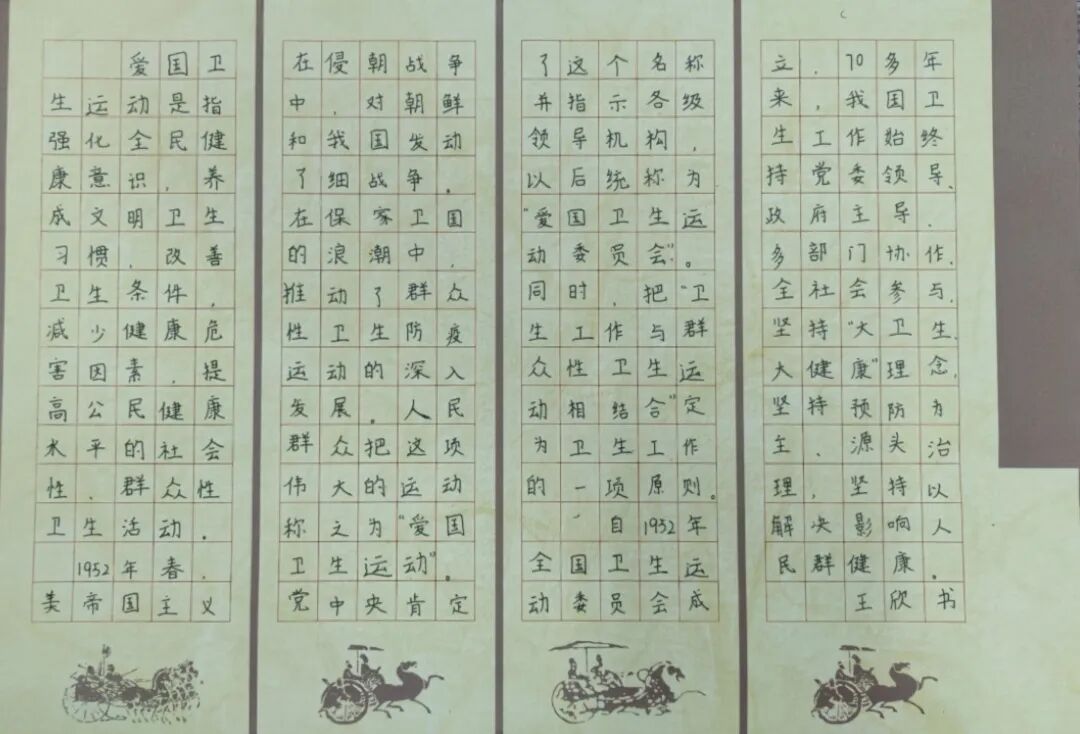 爱国卫
生运动是指
强化全民健
康意识，养
成文明卫生
习惯，改善
卫生条件，
减少健康危
害因素，提
高公民健康
水平的社会
性、群众性
卫生活动。
1952年春，
美帝国主义
在侵朝战争
中，对朝鲜
和我国发动
了细战争。
在保家卫国
的浪潮中，
推动了群众
性卫生防疫
运动的深入
发展。人民
群众把这项
伟大的运动
称之为“爱国
卫生运动”。
党中央肯定
了这个名称
并指示各级
领导机构，
以后统称为
“爱国卫生运
动委员会”。
同时，把“卫
生工作与群
众性卫生运
动相结合”定
为卫生工作
的一项原则。
自1952年
全国卫生运
动委员会成
立，70多年
来，我国卫
生工作始终
持党委领导、
政府主导、
多部门协作、
全社会参与，
坚持“大卫生、
大健康”理念，
坚持预防为
主、源头治
理，坚持以
解决影响人
民群健康。
王欣书